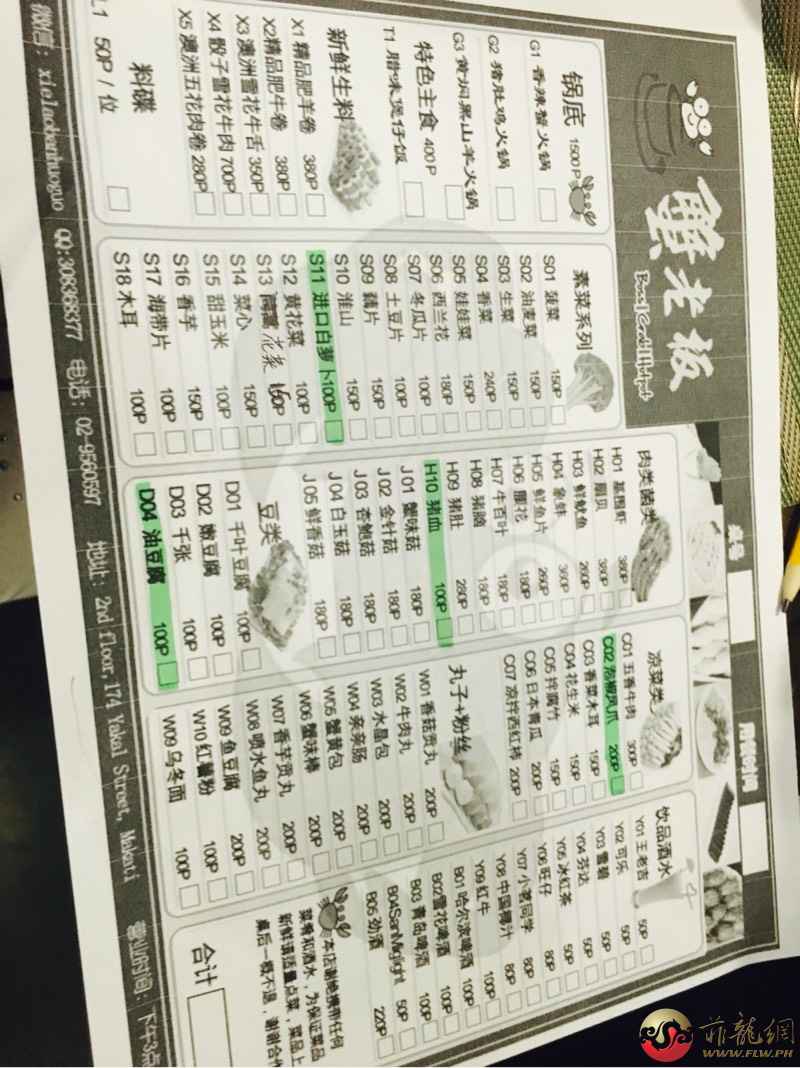 蟹老板
Boss Crab Hotpot
锅底 1500P
G1 香辣蟹火锅
G2 猪肚鸡火锅
G3 黄焖黑山羊火锅
特色主食 400P
T1 腊味煲仔饭
新鲜生料
X1 精品肥羊卷 380P
X2 精品肥牛卷 380P
X3 澳洲雪花牛舌 350P
X4 骰子雪花牛肉 700P
X5 澳洲五花肉卷 280P
料碟
L1 50P / 位
素菜系列
S01 菠菜 150P
S02 油麦菜 150P
S03 生菜 150P
S04 香菜 240P
S05 娃娃菜 150P
S06 西兰花 180P
S07 冬瓜片 100P
S08 土豆片 100P
S09 藕片 150P
S10 淮山 150P
S11 进口白萝卜 100P
S12 黄花菜 100P
S13 花菜
S14 菜心 150P
S15 甜玉米 100P
S16 香芋 150P
S17 海带片 100P
S18 木耳 100P
肉类菌类
H01 基围虾 380P
H02 扇贝 380P
H03 鲜鱿鱼 260P
H04 象蚌 360P
H05 鲜鱼片 260P
H06 腰花 180P
H07 牛百叶 180P
H08 猪脑 180P
H09 猪肚 280P
H10 猪血 100P
J01 蟹味菇 180P
J02 金针菇 180P
J03 杏鲍菇 180P
J04 白玉菇 180P
J05 鲜香菇 180P
豆类
D01 千叶豆腐 100P
D02 嫩豆腐 100P
D03 千张 100P
D04 油豆腐 100P
凉菜类
C01 五香牛肉 300P
C02 泡椒凤爪 280P
C03 香菜木耳 150P
C04 花生米 150P
C05 拌腐竹 150P
C06 日本青瓜 200P
C07 凉拌西红柿 200P
丸子+粉丝
W01 香菇贡丸 200P
W02 牛肉丸 200P
W03 水晶包 200P
W04 亲亲肠 200P
W05 蟹黄包 200P
W06 蟹味棒 200P
W07 香芋贡丸 200P
W08 喷水鱼丸 200P
W09 鱼豆腐 200P
W10 红薯粉 100P
W09 乌冬面 100P
饮品酒水
Y01 王老吉 50P
Y02 可乐 50P
Y03 雪碧 50P
Y04 芬达 50P
Y05 冰红茶 50P
Y06 旺仔 80P
Y07 小茗同学 80P
Y08 中国椰汁 80P
Y09 红牛 100P
B01 哈尔滨啤酒 100P
B02 雪花啤酒 100P
B03 青岛啤酒 100P
B04 SanMiglight 50P
B05 劲酒 220P
本店谢绝携带任何
菜肴和酒水，为保证菜品
新鲜请适量点菜，菜品上
桌后一概不退，谢谢合作
合计
微信：xielaobanhuoguo QQ:308368377 电话：02-9560597 地址：2nd floor,174 Yakal Street, Makati 营业时间：下午3点
菲龍網
WWW.FLW.PH